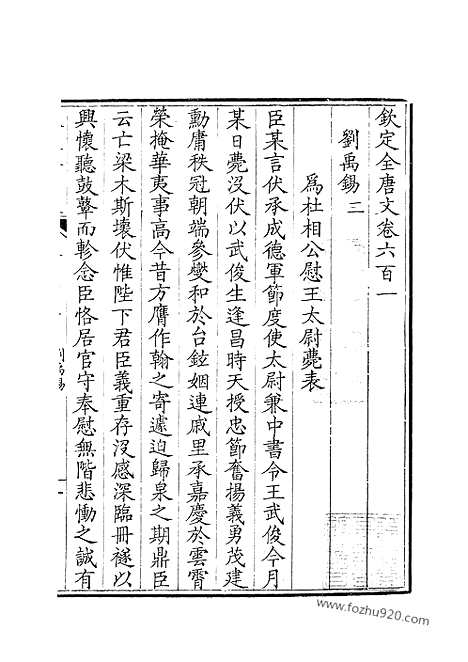 欽定全唐文卷六百一
劉禹錫三
爲杜相公慰王太尉薨表
臣某言伏承成德軍節度使太尉兼中書令王武俊今月
某日薨沒伏以武俊生逢昌時天授忠節奮揚義勇茂建
勳庸秩冠朝端參燮和於台鉉姻連戚里承嘉慶於雲霄
榮掩華夷事高今昔方膺作翰之寄遽迫歸泉之期鼎臣
云亡梁木斯壞伏惟陛下君臣義重存沒感深臨冊禭以
興懷聽鼓鼙而軫念臣恪居官守奉慰無階悲慟之誠有
劉禹錫
一
www.fozhu920.com